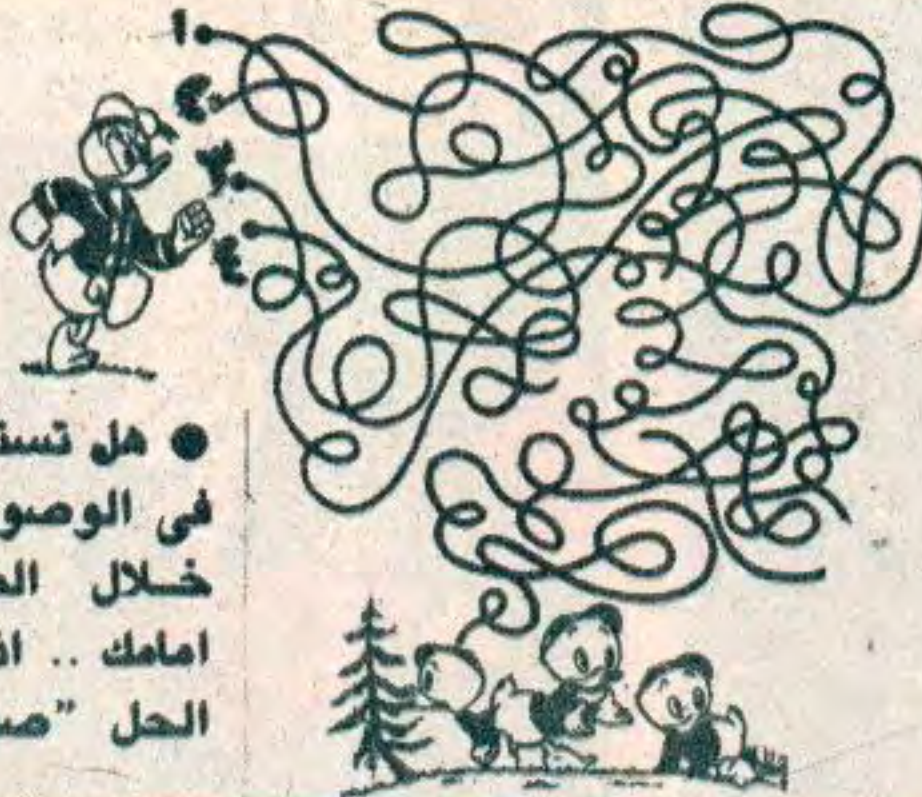 ١
٢
٣
٤
● هل تست
فى الوصو
خلال الم
امامك .. ان
الحل "ص